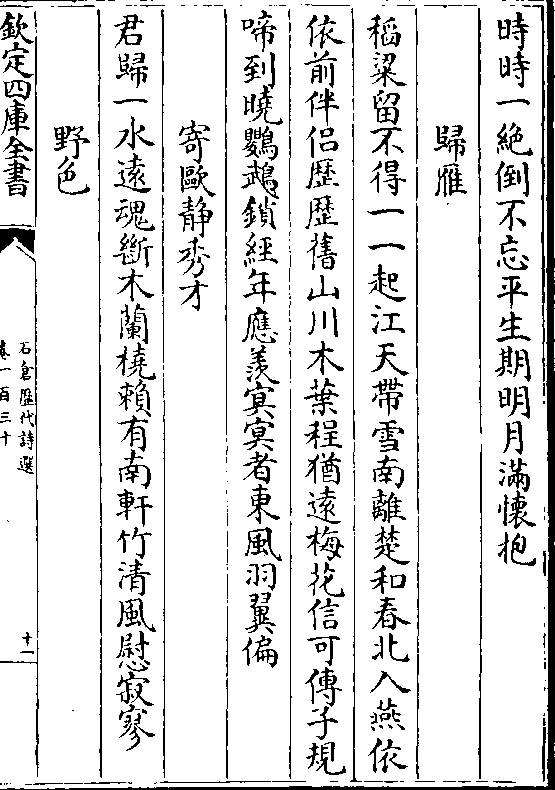 時時一絶倒不忘平生期明月滿懷抱
歸雁
稻粱留不得一一起江天帶雪南離楚和春北入燕依
依前伴侣歴歴舊山川木葉程猶遠梅花信可傳子規
啼到曉鸚鵡鎖經年應羨寞寞者東風羽翼偏
寄歐静秀才
君歸一水遠魂斷木蘭橈賴有南軒竹清風慰寂寥
野色
欽定四庫全書
石倉歴代詩選
卷一百三十
十一